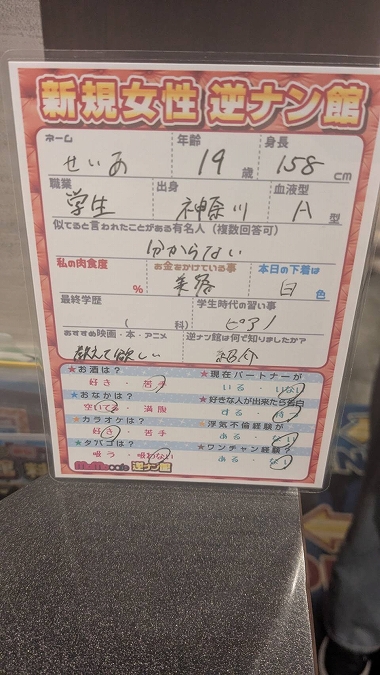 新規女性 逆ナン館
ネーム 年齢 身長
せいあ 19 歳 158 cm
職業 出身 血液型
学生 神奈川 A 型
似てると言われたことがある有名人（複数回答可）
分からない
私の肉食度 お金をかけている事 本日の下着は
% 美容 白 色
最終学歴 学生時代の習い事
( 科) ピアノ
おすすめ映画・本・アニメ 逆ナン館は何で知りましたか？
教えて欲しい 紹介
★お酒は？ ★現在パートナーが
好き・苦手 いる・いない
★おなかは？ ★好きな人が出来たら告白
空いてる・満腹 する・待つ
★カラオケは？ ★浮気不倫経験が
好き・苦手 ある・なし
★タバコは？ ★ワンチャン経験？
吸う・吸わない ある・なし
cafe 逆ナン館